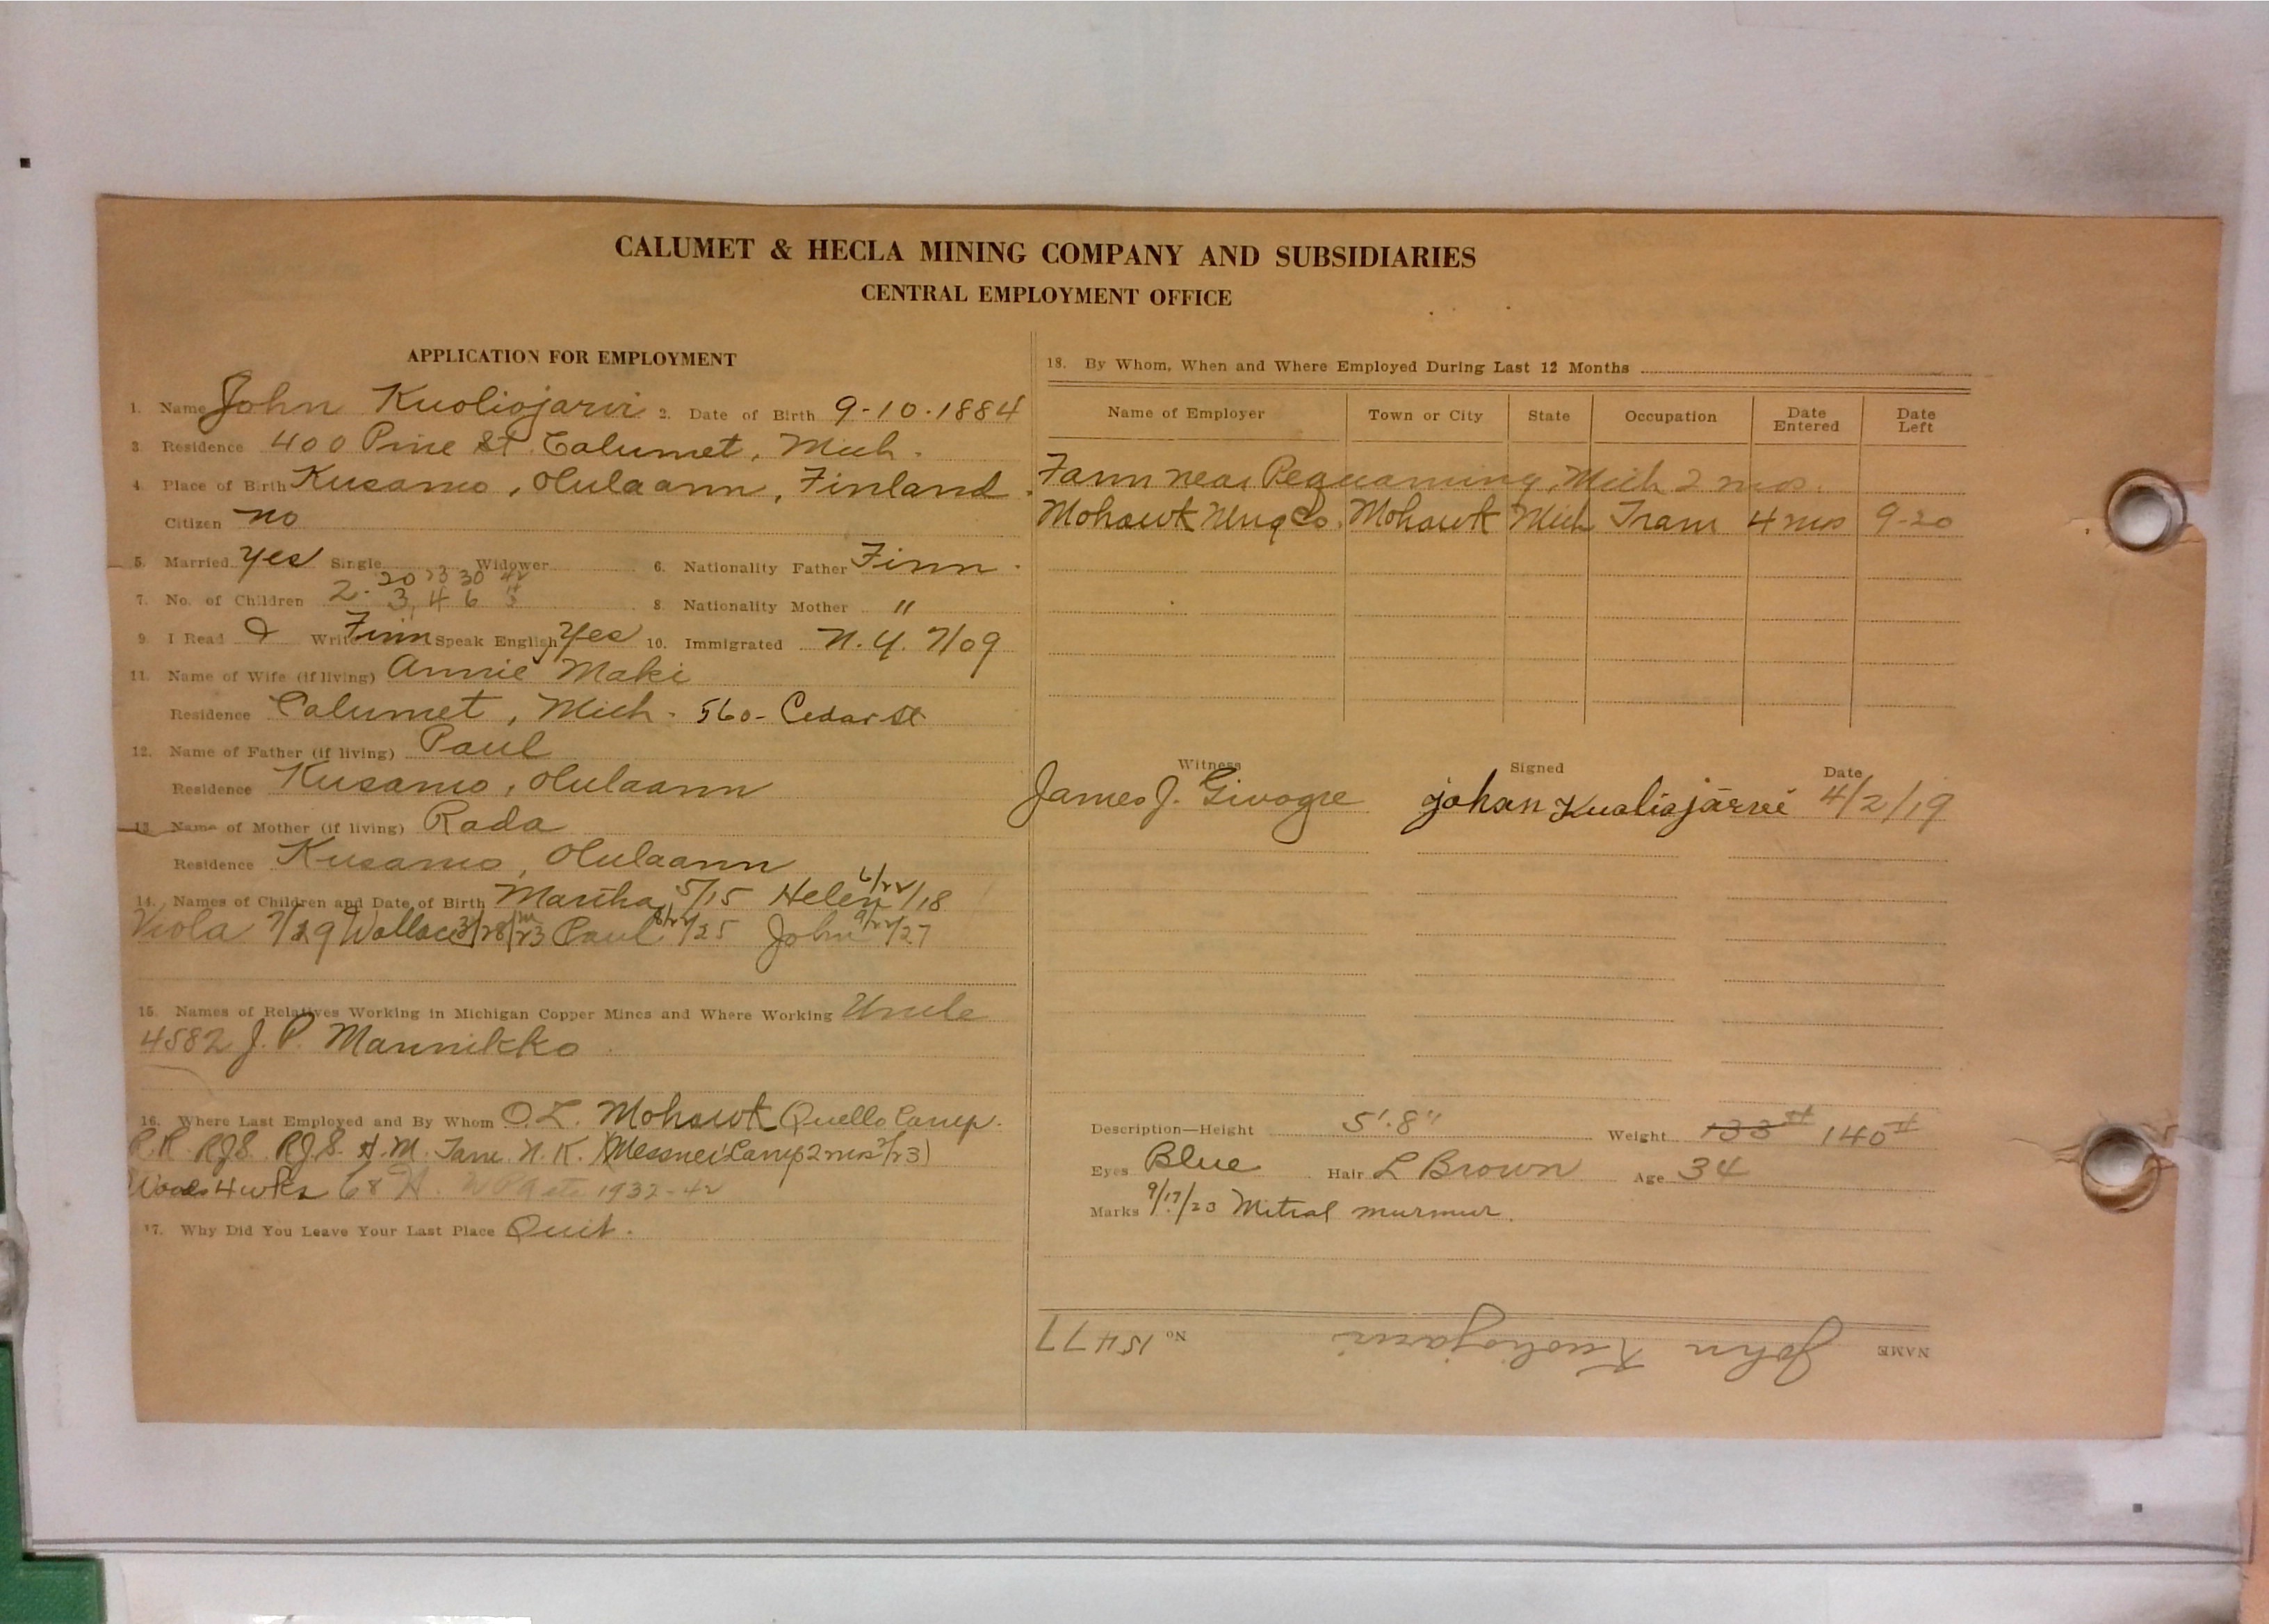 CALUMET & HECLA MINING COMPANY AND SUBSIDIARIES
CENTRAL EMPLOYMENT OFFICE
APPLICATION FOR EMPLOYMENT
1. Name John Kuoliojarvi 2. Date of Birth 9-10-1884
3. Residence 400 Pine St. Calumet, Mich.
4. Place of Birth Kusamo, Olulaann, Finland.
Citizen no
5. Married yes Single Widower 6. Nationality Father Finn.
20 23 30 42
7. No. of Children 2. 3, 4 6 8. Nationality Mother "
9. I Read & Write Finn Speak English Yes 10. Immigrated N.Y. 7/09
11. Name of Wife (if living) Annie Maki
Residence Calumet, Mich. 560- Cedar St
12. Name of Father (if living) Paul
Residence Kusamo, Olulaann
13. Name of Mother (if living) Rada
Residence Kusamo, Olulaann
14. Names of Children and Date of Birth Martha 5/15 Helen 6/22/18
Viola 7/29 Wallace 3/28/23 Paul 8/22/25 John 9/22/27
15. Names of Relatives Working in Michigan Copper Mines and Where Working Uncle
4582 J. P. Mannikko
16. Where Last Employed and By Whom O.L. Mohawk Quello Camp.
R.R. RJS. RJS. H.M. Tam. N.K. (Messner Camp 2 mos 2/23)
Woods 4 wks 68 H. 1932-42
17. Why Did You Leave Your Last Place Quit.
18. By Whom, When and Where Employed During Last 12 Months
Name of Employer Town or City State Occupation Date Entered Date Left
Farm near Pequaming, Mich 2 mos.
Mohawk Mng Co. Mohawk Mich Tram 4 mos 9-20
Witness Signed Date
James J. Givogre Johan Kuoliojärvi 4/2/19
Description—Height 5'.8" Weight 133# 140#
Eyes Blue Hair L Brown Age 34
Marks 9/17/23 Mitral murmur.
NAME John Kuoliojarvi No 15477